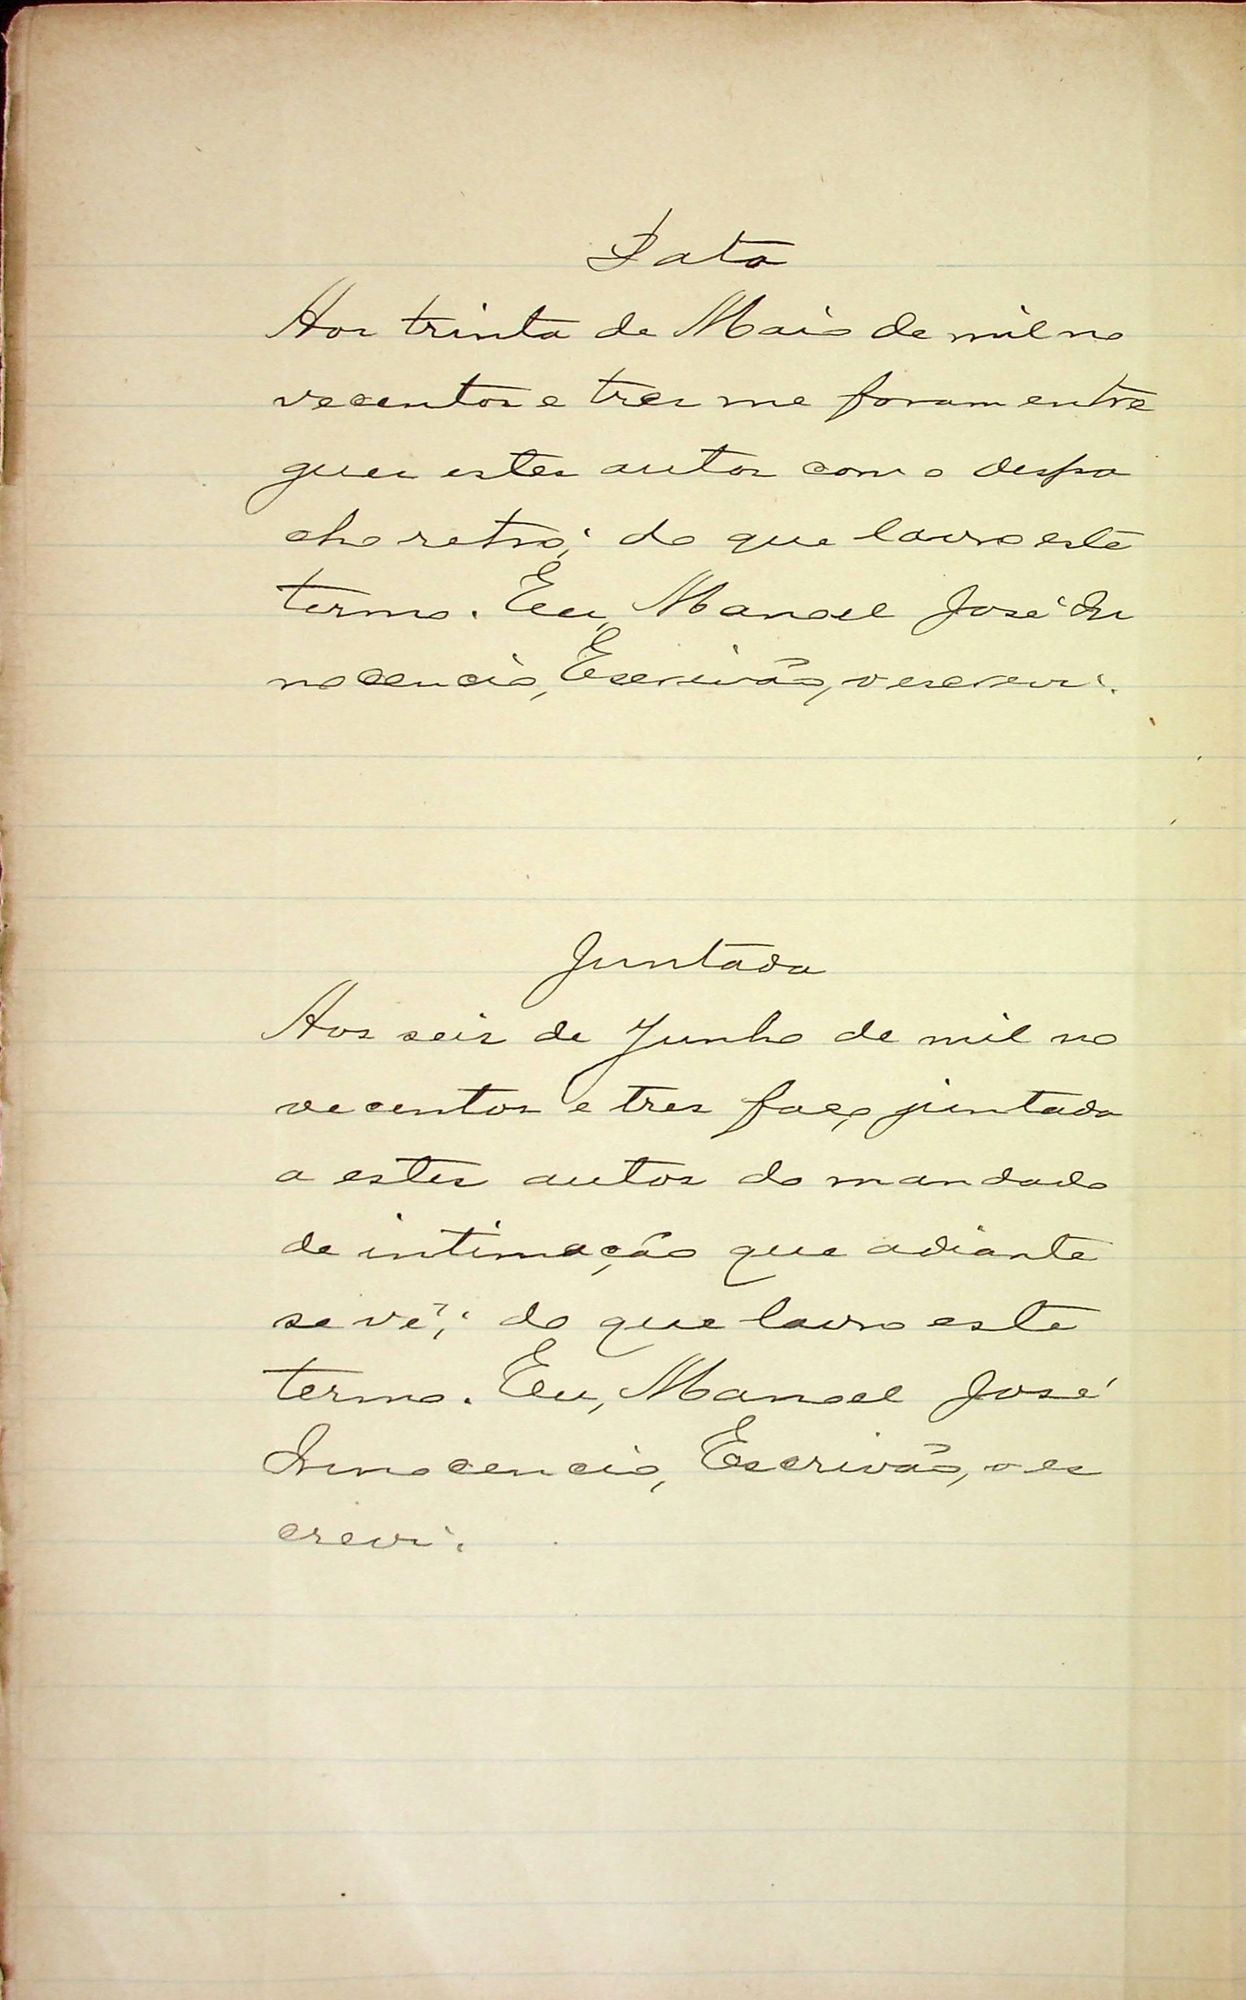 Data
Aos trinta de Maio de mil no
vecentos e tres me foram entre
gues estes autos com o despa
cho retro; do que lavro este
termo. Eu, Manoel José In
nocencio, Escrivão, o escrevi.
Juntada
Aos seis de Junho de mil no
vecentos e tres faço juntada
a estes autos do mandado
de intimação que adiante
se vê; do que lavro este
termo. Eu, Manoel José
Innocencio, Escrivão, o es
crevi.